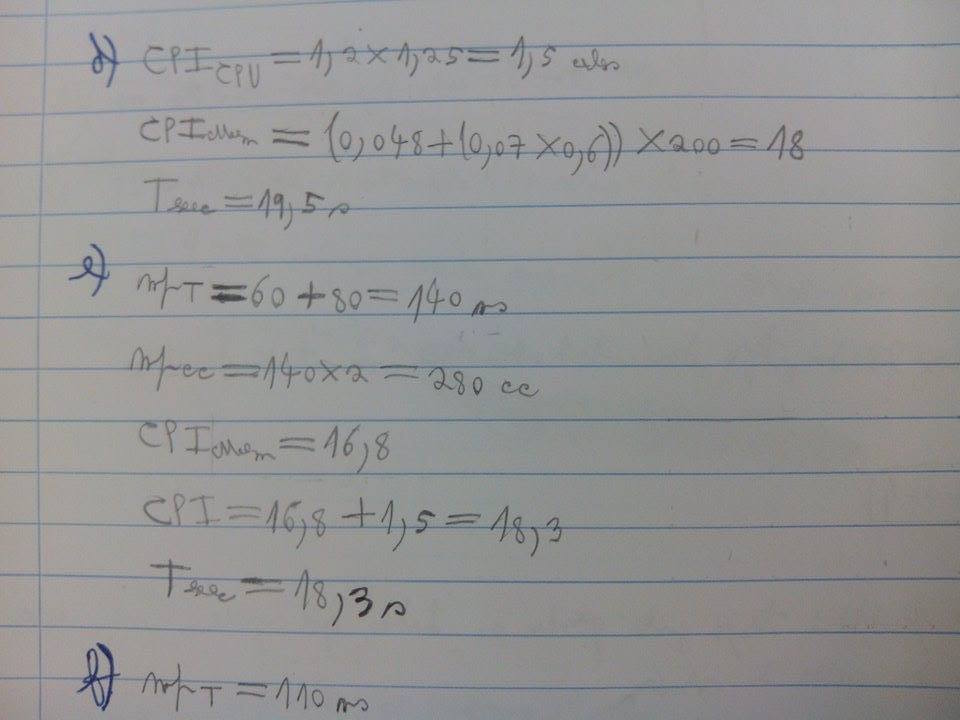 d) CPI CPU = 1,2 × 1,25 = 1,5
CPI Mem = (0,048 + (0,07 × 0,6)) × 200 = 18
Texec = 19,5 s
e) mpT = 60 + 80 = 140 ns
mpcc = 140 × 2 = 280 cc
CPI Mem = 16,8
CPI = 16,8 + 1,5 = 18,3
Texec = 18,3 s
f) mpT = 110 ns